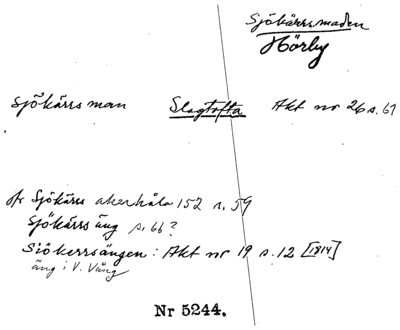 Sjökärrsmaden
Hörby
Sjökärrsman Slagtofta Akt nr 26 s. 61
jfr Sjökärrs åkerhåla 152 s. 59
Sjökärrsäng s. 66?
Siökerrsängen: Akt nr 19 s. 12 [1814]
äng i V. Vång
Nr 5244.